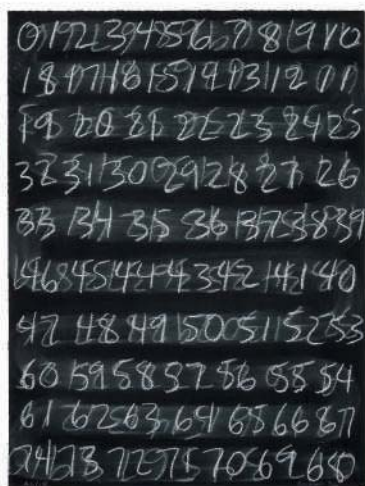 0 1 2 3 4 5 6 7 8 9 10
18 17 16 15 14 13 12 11
19 20 21 22 23 24 25
32 31 30 29 28 27 26
33 34 35 36 37 38 39
46 45 44 43 42 41 40
47 48 49 50 51 52 53
60 59 58 57 56 55 54
61 62 63 64 65 66 67
74 73 72 71 70 69 68